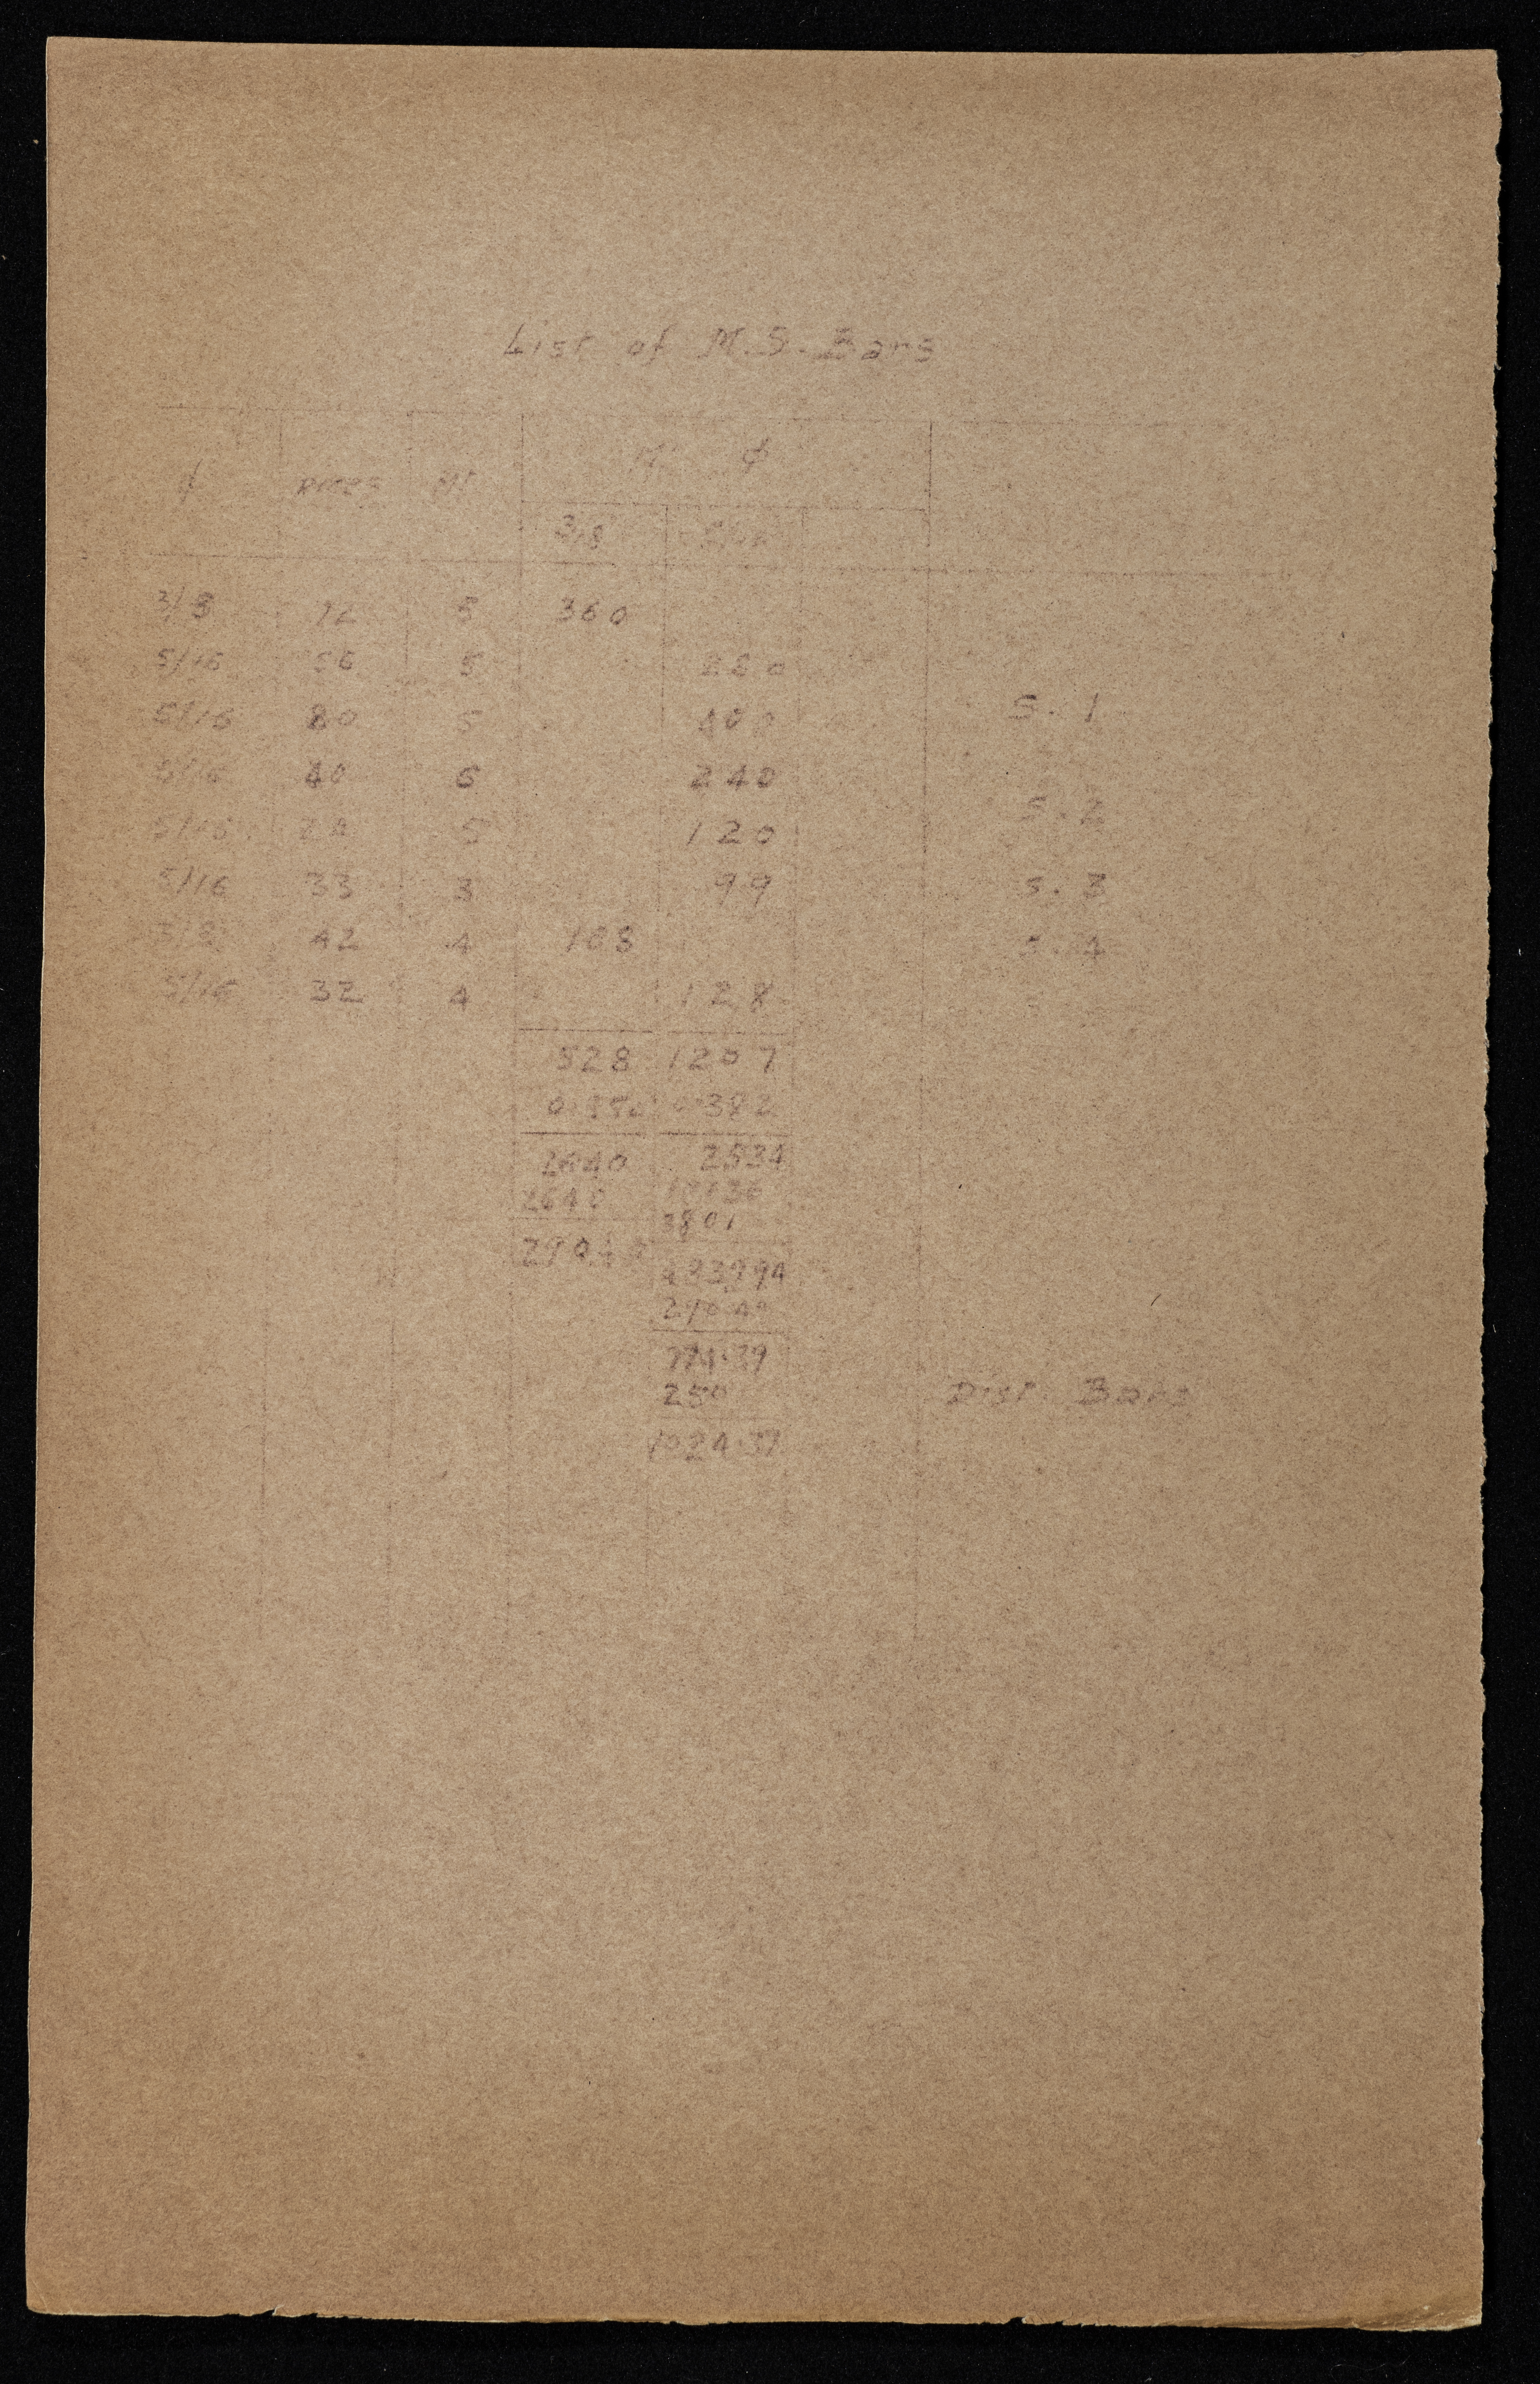 List of M.S. Bars
φ Pices Mt M φ
3/8 5/16
3/8 72 5 360
5/16 56 5 280
5/16 80 5 400 S. 1
5/16 40 6 240
S. 2
5/16 24 5 120
5/16 33 3 99 S. 3
3/8 42 4 168 S. 4
5/16 32 4 128
528 1267
0.550 0.382
2640 2534
2640 10136
3801
290.40
483994
290.40
774.39
250 Dist. Bars
1024.39